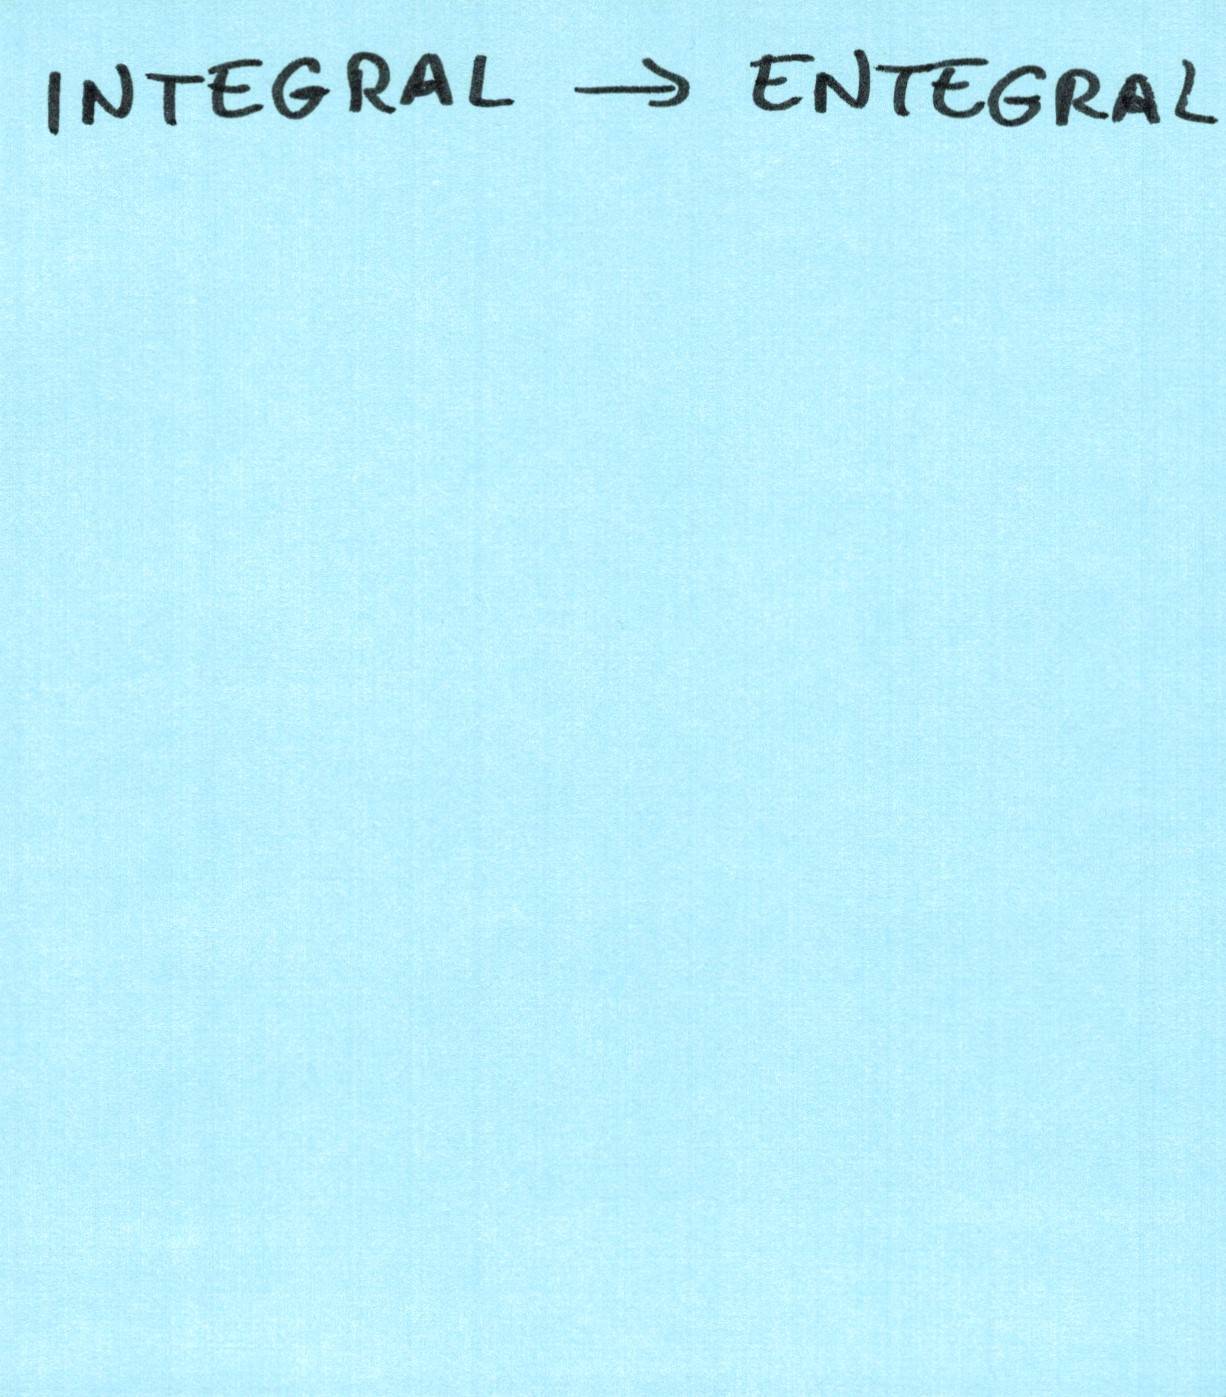 INTEGRAL → ENTEGRAL